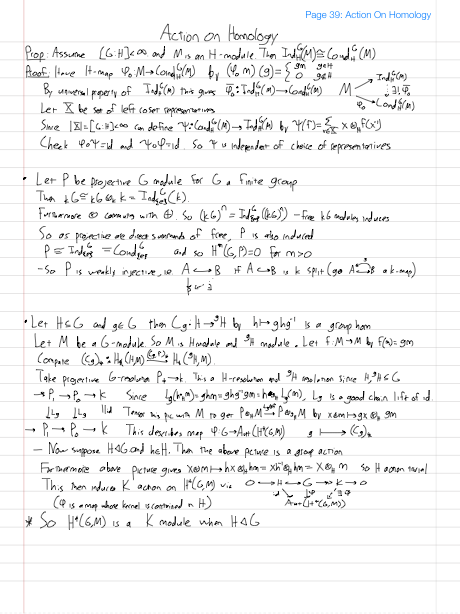 Page 39: Action On Homology
Action on Homology
Prop: Assume [G:H]<∞ and M is an H-module. Then Ind_H^G(M) ≅ CoInd_H^G(M)
Proof: Have H-map φ₀: M → CoInd_H^G(M) by (φ₀ m)(g) = { gm g∈H
0 g∉H
By universal property of Ind_H^G(M) this gives φ₀: Ind_H^G(M) → CoInd_H^G(M) M → Ind_H^G(M) ↓ ∃! φ₀ CoInd_H^G(M)
Let X be set of left coset representatives
Since |X| = [G:H]<∞ can define Ψ: CoInd_H^G(M) → Ind_H^G(M) by Ψ(f) = Σ x ⊗ f(x⁻¹)
Check φ∘Ψ=id and Ψ∘φ=id. So Ψ is independent of choice of representatives
• Let P be projective G module for G a finite group
Then kG ≅ kG ⊗_k k = Ind_{e}^G(k).
Furthermore ⊗ commutes with ⊕. So (kG)ⁿ = Ind_{e}^G((k)ⁿ) - free kG modules induced
So as projective are direct summands of free, P is also induced
P ≅ Ind_{e}^G = CoInd_{e}^G and so Hⁿ(G,P)=0 for n>0
- So P is weakly injective, i.e. A ↪ B if A ↪ B is k split (
• Let H≤G and g∈G then C_g: H → ᵍH by h ↦ ghg⁻¹ is a group hom
Let M be a G-module. So M is H module and ᵍH module. Let f: M→M by f(m)=gm
Compute (C_g)_*: H_*(H,M) → H_*(ᵍH,M)
Take projective G-resolution P_* → k. This a H-resolution and ᵍH resolution since H, ᵍH ≤ G
→ P₁ → P₀ → k Since is a good chain lift of id
↓Lg ↓Lg ↓id Tensor this pic with M to get P⊗_H M → P⊗_{ᵍH} M by x⊗m ↦ gx ⊗ gm
→ P₁ → P₀ → k This describes map φ: G → Aut(H^*(G,M)) g ↦ (C_g)_*
- Now suppose H◁G and h∈H. Then the above picture is a group action
Furthermore above picture gives x⊗m ↦ hx⊗_H hm = xh⁻¹⊗_H hm = x⊗_H m so H action trivial
This then induces K action on H^*(G,M) via 0 → H → G → K → 0
(φ is a map whose kernel is contained in H) Aut(H^*(G,M))
* So H^*(G,M) is a K module when H◁G